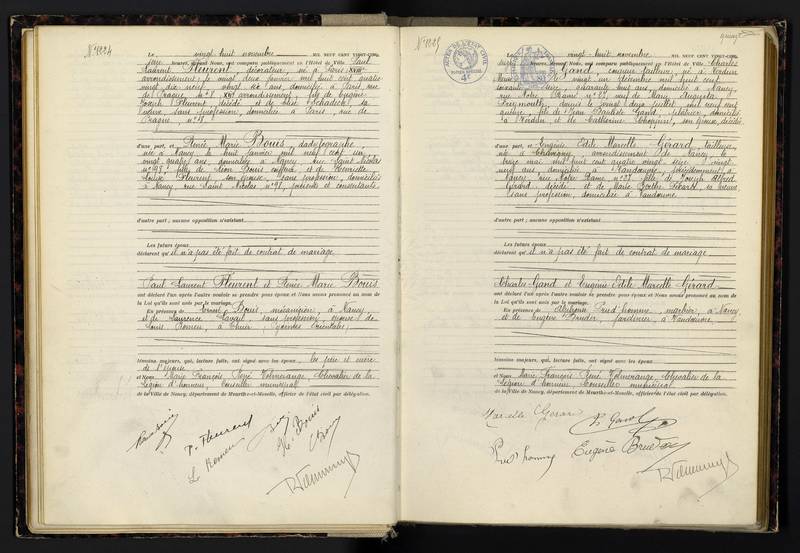 N° 1224
Le vingt huit novembre MIL NEUF CENT VINGT-CINQ
heures, devant Nous, ont comparu publiquement en l'Hôtel de Ville Paul
Laurent Fleurent, décorateur, né à Paris XVIII
arrondissement, le vingt deux janvier mil huit cent quatre
vingt dix neuf, vingt six ans, domicilié à Paris, rue
de Prague, n° 8, arrondissement, fils de Eugène
Joseph Fleurent, décédé et de Elise Schadeck, sa
veuve, sans profession, domiciliée à Paris, rue de
Prague, n° 8
d'une part, et Renée Marie Bouis, dactylographe,
née à Nancy, le huit janvier mil neuf cent un,
vingt quatre ans, domiciliée à Nancy, rue Saint Nicolas
n° 98, fille de Léon Bouis, coiffeur, et de Henriette
Louise Fleurent, son épouse, sans profession, domiciliés
à Nancy, rue Saint Nicolas n° 98, présents et consentants
d'autre part ; aucune opposition n'existant
Les futurs époux
déclarent qu'il n'a pas été fait de contrat de mariage
Paul Laurent Fleurent et Renée Marie Bouis
ont déclaré l'un après l'autre vouloir se prendre pour époux et Nous avons prononcé au nom de
la Loi qu'ils sont unis par le mariage.
En présence de Bouis, mécanicien, à Nancy
et de Laurence sans profession, épouse de
Louis Romeu, à Thuir, Pyrénées Orientales,
témoins majeurs, qui, lecture faite, ont signé avec les époux les père et mère
de l'épouse
et Nous Marie François René Volmerange, Chevalier de la
Légion d'honneur, Conseiller municipal
de la Ville de Nancy, département de Meurthe-et-Moselle, officier de l'état civil par délégation.
P. Fleurent
L. Romeu
Bouis
N° 1225
Le vingt huit novembre MIL NEUF CENT VINGT-CINQ
heures, devant Nous, ont comparu publiquement en l'Hôtel de Ville Charles
Gand, coupeur tailleur, né à Verdun
Meuse, le vingt un décembre mil huit cent
soixante seize, quarante huit ans, domicilié à Nancy,
rue Notre Dame n° 28, veuf de Marie Augusta
depuis le vingt deux juillet mil neuf cent
quinze, fils de Jean Baptiste Gand, domicilié
à Verdun et de Catherine son épouse, décédée
d'une part, et Eugénie Edile Marcelle Gérard, tailleuse,
née à Chavigny, arrondissement de Nancy, le
treize mai mil huit cent quatre vingt seize, vingt
neuf ans, domiciliée à Vandoeuvre, précédemment à
Nancy, rue Notre Dame n° 28, fille de Joseph Alfred
Gérard, décédé et de Marie Berthe sa veuve
sans profession, domiciliée à Vandoeuvre
d'autre part ; aucune opposition n'existant
Les futurs époux
déclarent qu'il n'a pas été fait de contrat de mariage
Charles Gand et Eugénie Edile Marcelle Gérard
ont déclaré l'un après l'autre vouloir se prendre pour époux et Nous avons prononcé au nom de
la Loi qu'ils sont unis par le mariage.
En présence de Prud'homme, marbrier, à Nancy
et de Eugène Bruder, jardinier, à Vandoeuvre,
témoins majeurs, qui, lecture faite, ont signé avec les époux
et Nous Marie François René Volmerange, Chevalier de la
Légion d'honneur, Conseiller municipal
de la Ville de Nancy, département de Meurthe-et-Moselle, officier de l'état civil par délégation.
Marcelle Gérard
Gand
Prud'homme
Eugène Bruder